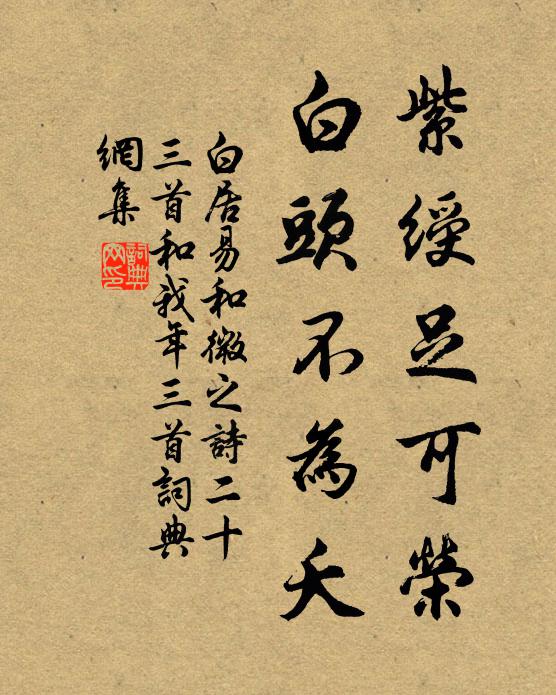 紫綬足可榮
白頭不為夭
白居易和微之詩二十
三首和我年三首詞典
網集
詞典網印